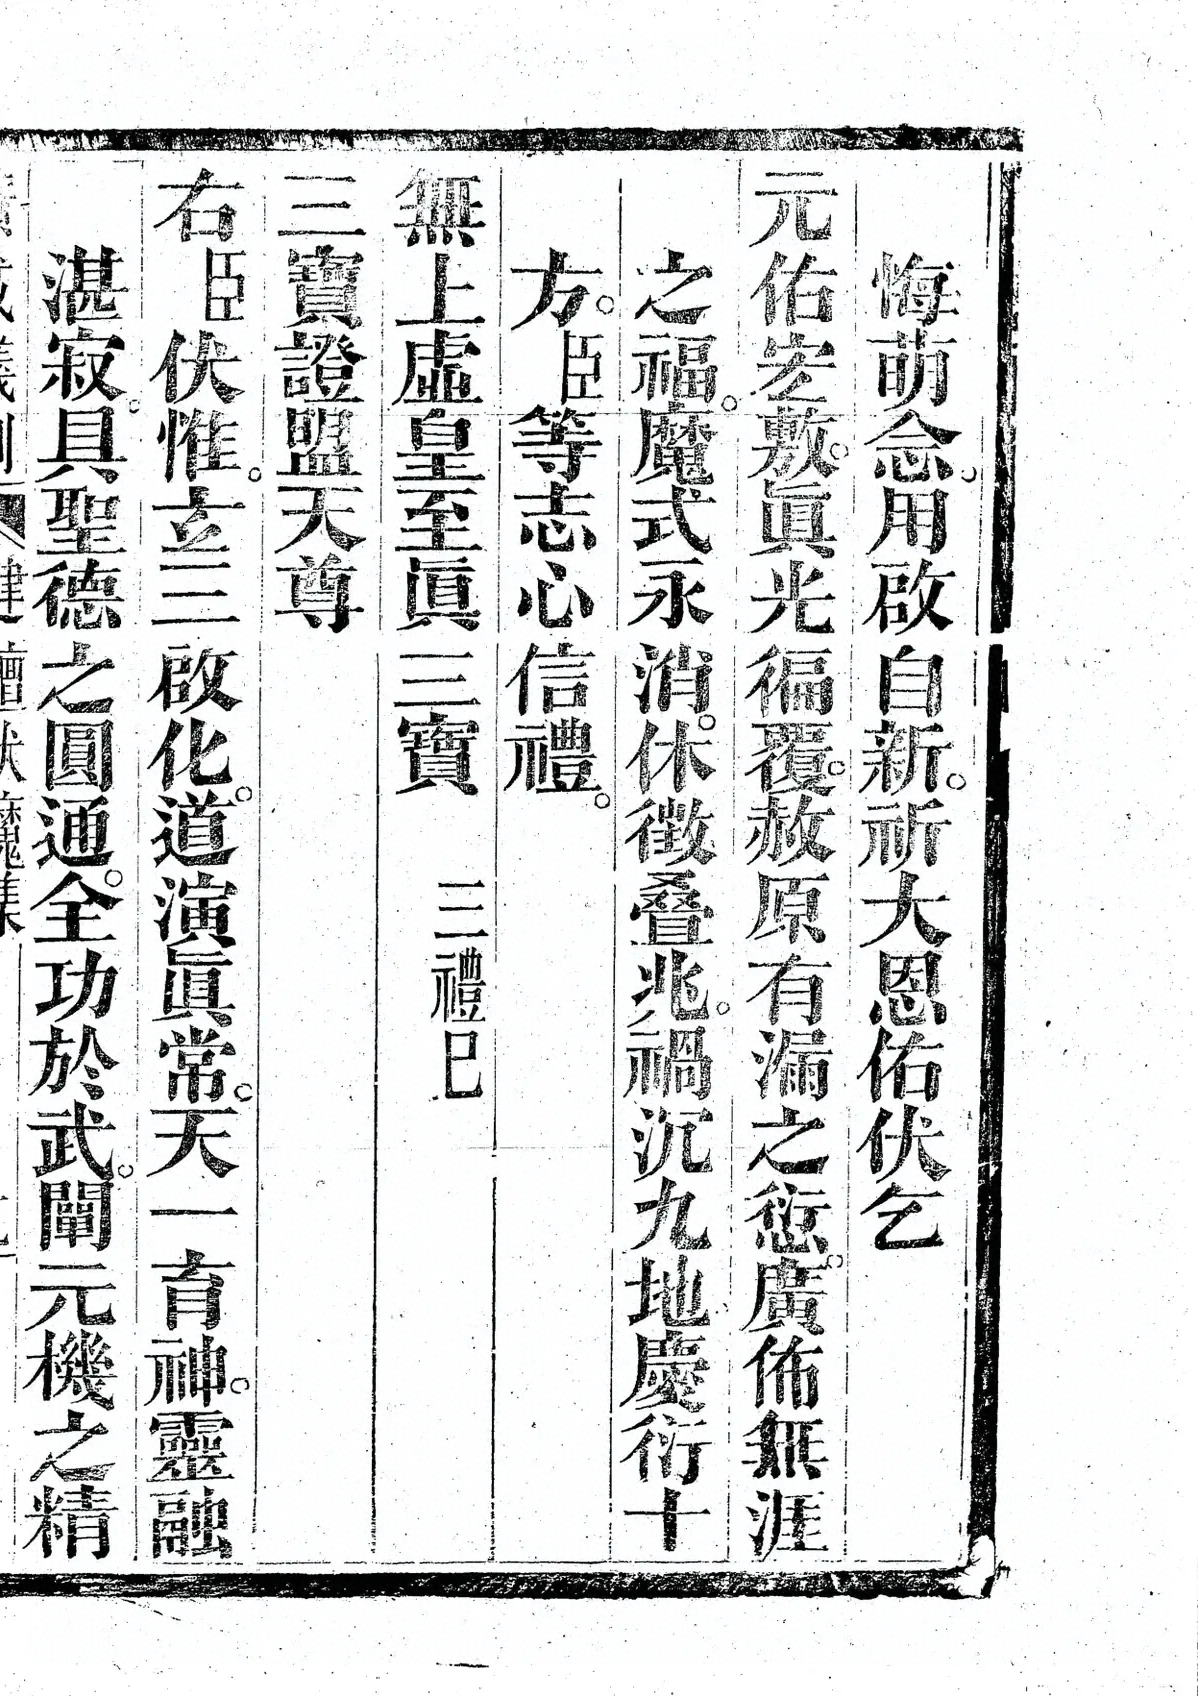 悔萌念。用啟自新。祈大恩佑伏乞
元佑宏敷。眞光徧覆。赦原有漏之愆。廣佈無涯
之福。魔式永消。休徵叠兆。禍沉九地慶衍十
方。臣等志心信禮。
無上虛皇至眞三寶 三禮已
三寶證盟天尊
右臣伏惟。玄三啟化。道演眞常。天一育神。靈融
湛寂。具聖德之圓通。全功於武。闡元機之精